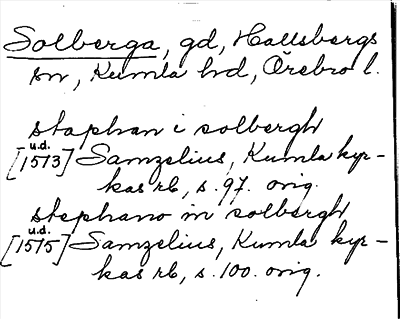 Solberga, gd, Hallsbergs
sn, Kumla hd, Örebro l.
staphan i solbergh
u.d.
[1573] Samzelius, Kumla kyr-
kas rb, s. 97. orig.
stephano in solbergh
u.d.
[1575] Samzelius, Kumla kyr-
kas rb, s. 100. orig.